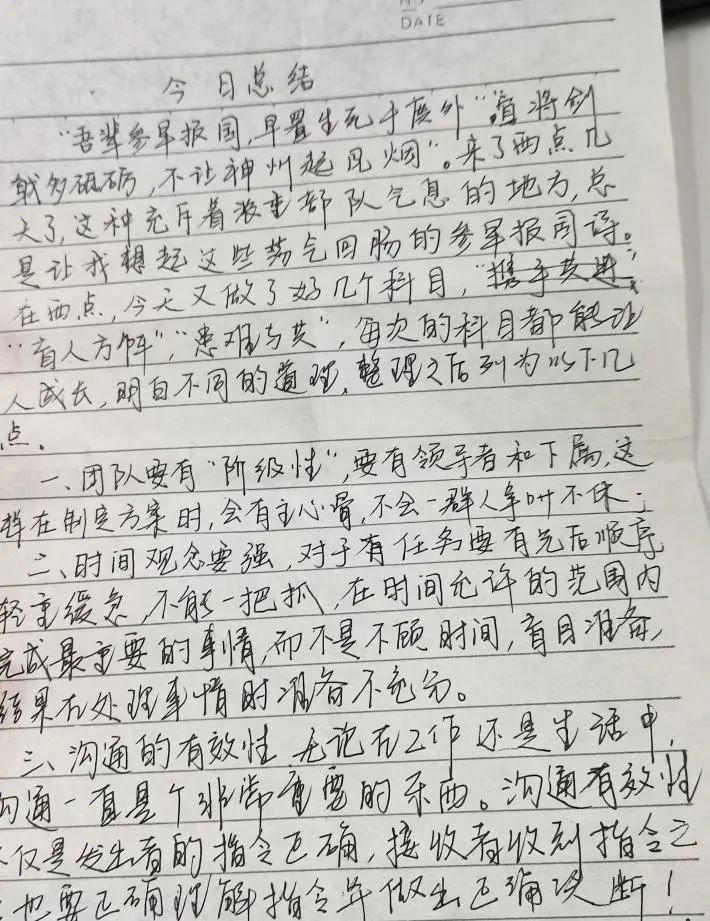 DATE
今日总结
“吾辈参军报国,早置生死于度外”“直将剑
戟多砥砺,不让神州起风烟”。来了西点几
天了,这种充斥着浓重部队气息的地方,总
是让我想起这些荡气回肠的参军报国诗。
在西点,今天又做了好几个科目,“携手共进”
“盲人方阵”,“患难与共”,每次的科目都能让
人成长,明白不同的道理,整理之后列为以下几
点.
一、团队要有“阶级性”,要有领导者和下属,这
样在制定方案时,会有主心骨,不会一群人争吵不休;
二、时间观念要强,对于有任务要有先后顺序
轻重缓急,不能一把抓,在时间允许的范围内
完成最重要的事情,而不是不顾时间,盲目准备,
结果在处理事情时准备不充分。
三、沟通的有效性,无论在工作还是生活中,
沟通一直是个非常重要的东西。沟通有效性
不仅是发出者的指令正确,接收者收到指令之
也要正确理解指令并做出正确决断!